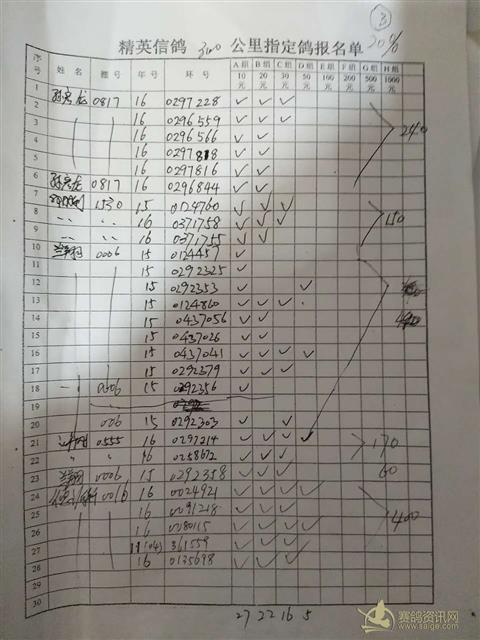 ③
20%
精英信鸽 300 公里指定鸽报名单
序号 姓名 棚号 年号 环号 A组10元 B组20元 C组30元 D组50元 E组100元 F组200元 G组500元 H组1000元
1
2 0817 16 0297228 ✓ ✓ ✓
3 16 0296559 ✓ ✓ ✓
4 16 0296566 ✓ ✓
5 16 0297818 ✓ ✓
16 0297816 ✓ ✓
6 0817 16 0296844 ✓ ✓
240
7 1530 15 0124760 ✓ ✓ ✓
8 16 0371758 ✓ ✓ ✓
9 16 0371755 ✓ ✓
150
10 0006 15 0124457 ✓
11 15 0292325 ✓
12 15 0292353 ✓ ✓
13 15 0124860 ✓ ✓ ✓
14 15 0437056 ✓
15 15 0437026 ✓
16 15 0437041 ✓ ✓ ✓ ✓
17 15 0292379 ✓ ✓ ✓
18 0006 15 0292356 ✓
19
20 006 15 0292303 ✓ ✓
21 0555 16 0297214 ✓ ✓ ✓ ✓
170
22 16 0258672 ✓ ✓ ✓
23 0006 15 0292358 ✓ ✓ ✓
60
24 0016 16 0024921 ✓ ✓ ✓ ✓
25 16 0091218 ✓ ✓ ✓
26 16 0080115 ✓ ✓ ✓ ✓
400
27 11 (04) 361559 ✓ ✓ ✓
28 16 0135698 ✓ ✓ ✓
29
30
27 22 16 5
赛鸽资讯网
www.saige.com